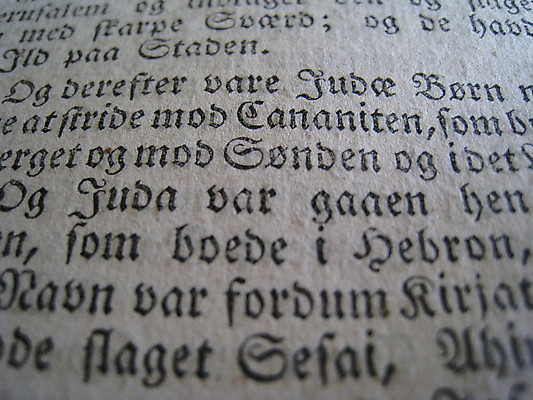 Jerusalem og indtaget den og slaget
med skarpe Sværd; og de havd
Ild paa Staden.
Og derefter vare Judæ Børn n
e at stride mod Cananiten, som b
erget og mod Sønden og i det
Og Juda var gaaen hen
n, som boede i Hebron,
Navn var fordum Kirjat
de slaget Sesai, Ahi